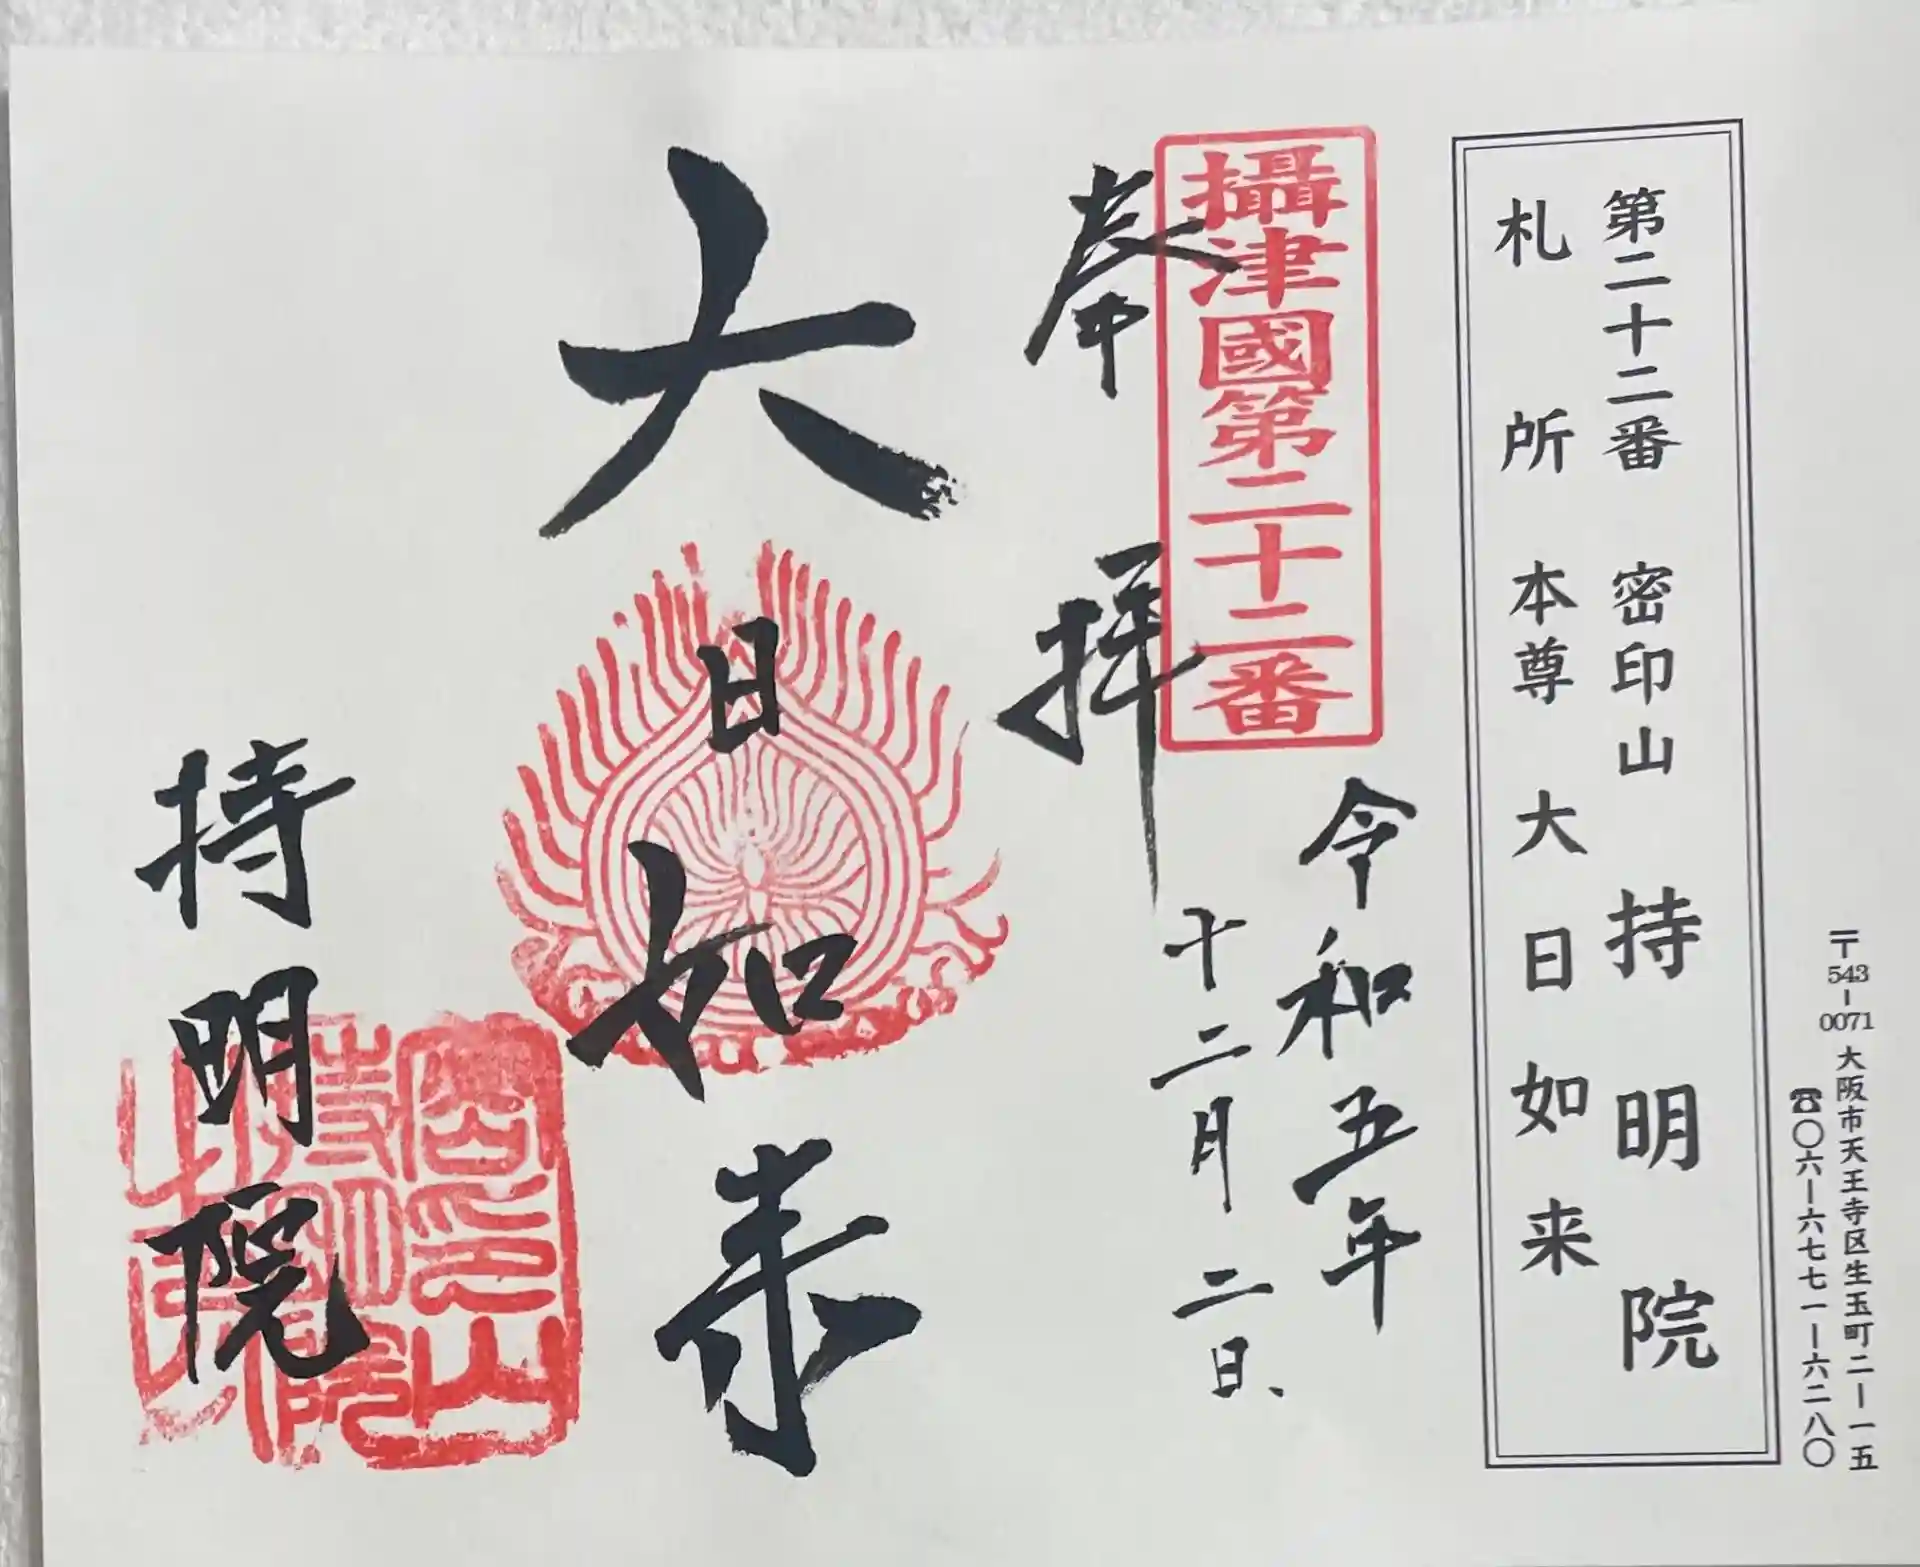 〒543-0071 大阪市天王寺区生玉町二ー一五
☎〇六ー六七七一ー六二八〇
第二十二番 密印山 持明院
札所本尊 大日如来
攝津國第二十二番
奉拝
令和五年
十二月二日、
大日如来
持明院
密印山
持明院